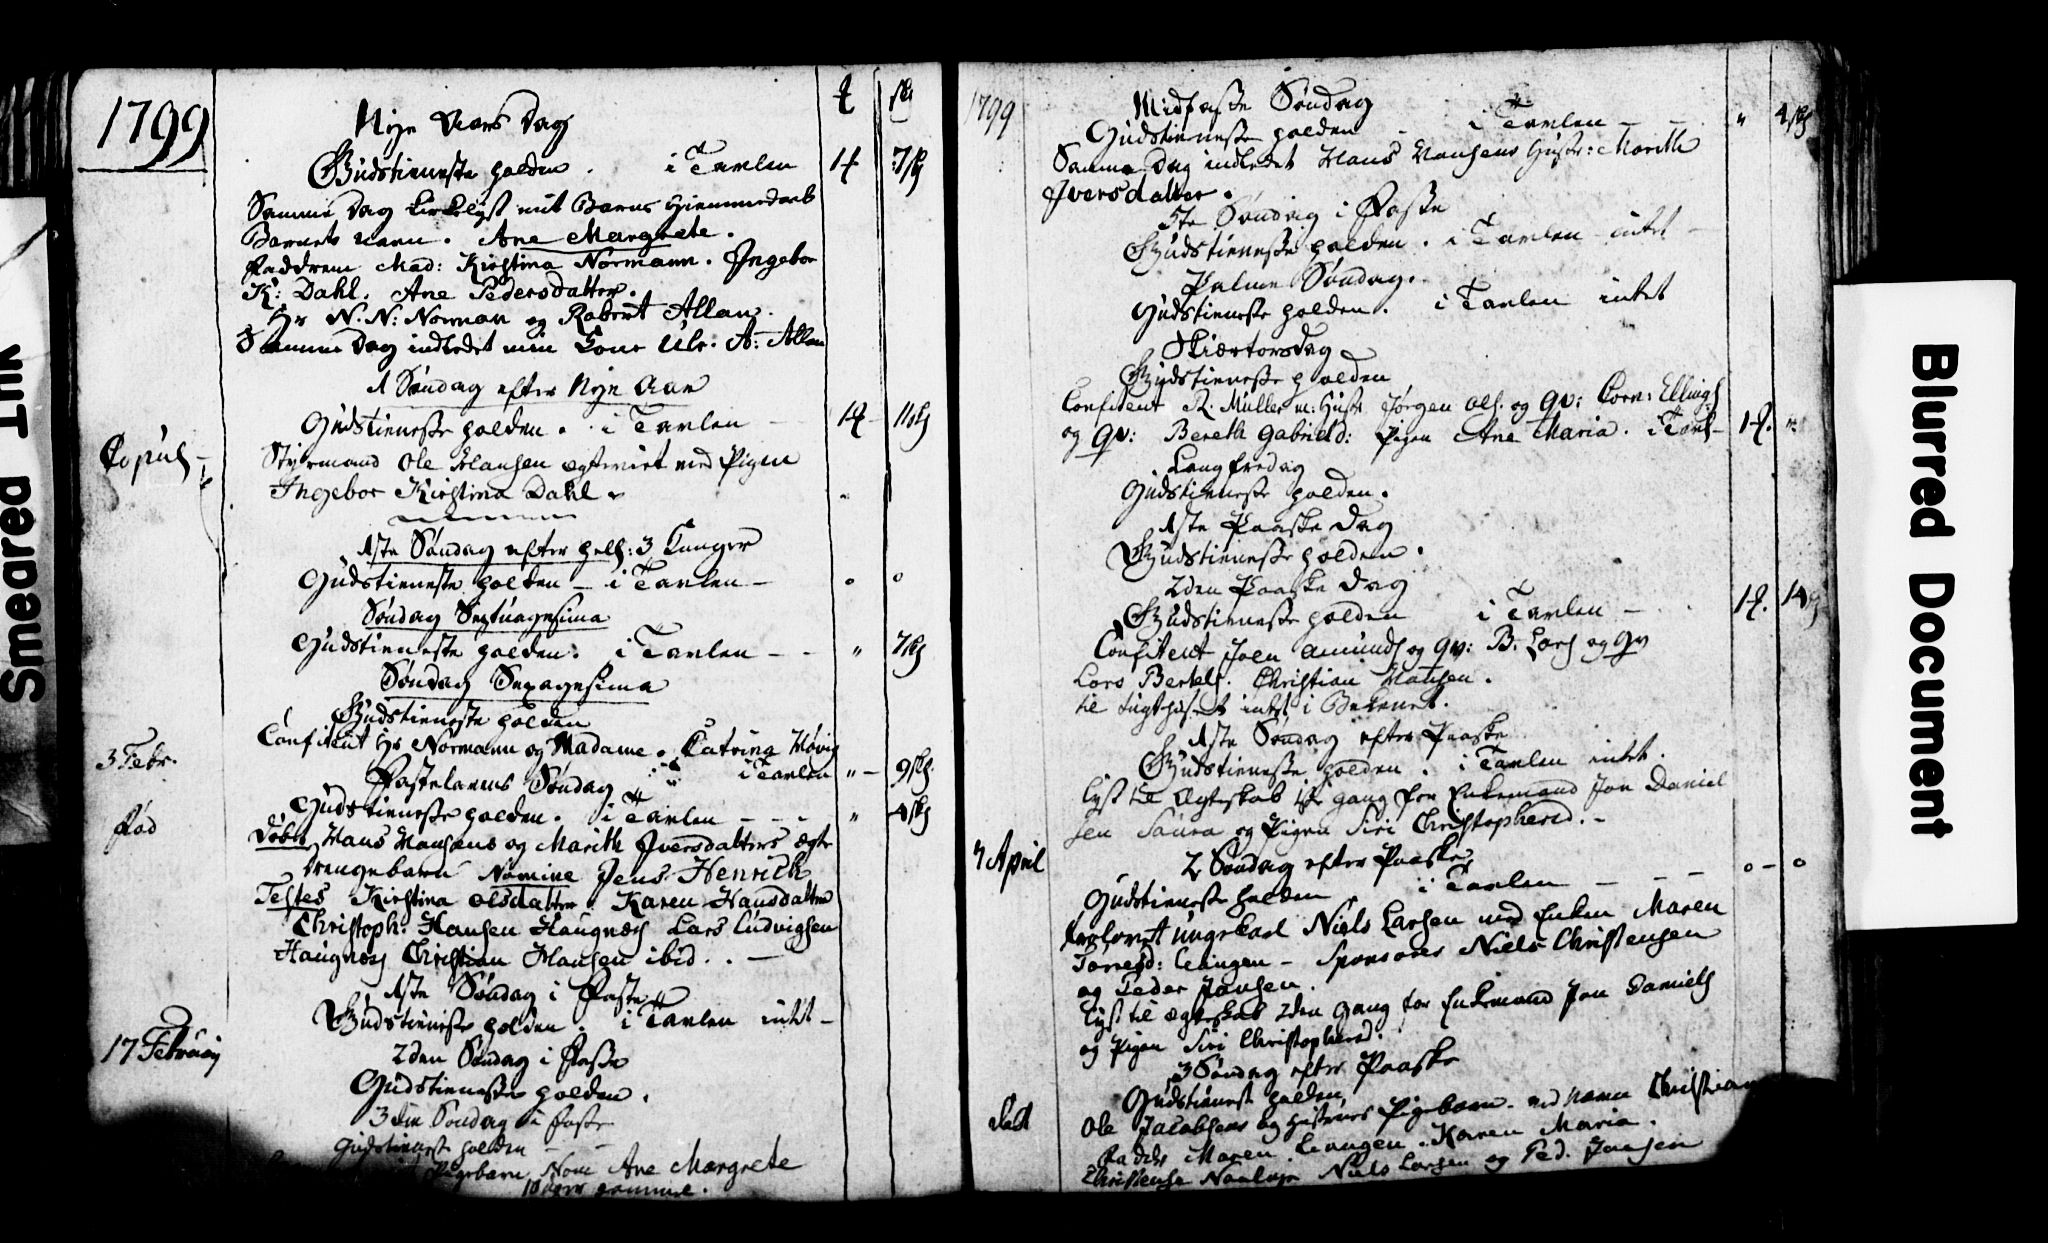 1799
Nÿe Aars Dag
Gudstieneste holden . i Tavlen 1# 7ß
Samme Dag kirkelyst mit Barns Hiemmedaab
Barnets navn . Ane Margrete .
Faddrene Mad: Kirstina Normann . Ingebor
K: Dahl . Ane Pedersdatter .
Hr N. N: Norman og Robert Allan .
Samme Dag indledet min Kone Ulr: A: Allan
1 Søndag efter Nÿe Aar
Gudstieneste holden . i Tavlen 1# 11ß
Copul
Styrmand Ole Hansen egteviet med Pigen
Ingebor Kirstina Dahl
1ste Søndag efter hell: 3 Konger
Gudstieneste holden - i Tavlen - 0 0
Søndag Septuagesima
Gudstieneste holden . i Tavlen - - " 7ß
Søndag Sexagesima
Gudstieneste holden
Confitent Hr Normann og Madame . Catrina Høvig
i Tavlen " - 9ß
3 Febr.
Fastelavens Søndag
Gudstieneste holden . i Tavlen - - - " 4ß
Fød
Døbt Hans Hansens og Marith Iversdatters ægte
drengebarn Nomine Jens Henrich
Testes Kirstina Olsdatter . Karen Hansdatter
Christoph: Hansen Haugnæs Lars Ludvigsen
Haugnæs Christian Hansen ibid . . -
1ste Søndag i Faste
Gudstieneste holden . i Tavlen intet -
17 Februarÿ
2den Søndag i Faste
Gudstieneste holden .
3die Søndag i Faste
Gudstieneste holden
Pigebarn Nom Ane Margrete
gammel .
1799
Midfaste Søndag
Gudstieneste holden - i Tavlen - - " 4ß
Samme Dag indledet Hans Hansens Hustr: Marith
Iversdatter .
5te Søndag i Faste
Gudstieneste holden . i Tavlen intet -
Palme Søndag .
Gudstieneste holden . i Tavlen intet
Skiærtorsdag
Gudstieneste holden
Confitent R. Müller m: Hustr Jørgen Ols. og qv: Corn: Ellings
og qv: Bereth Gabrield: Pigen Ane Maria . i Tavl- 1#.
Langfredag
Gudstieneste holden .
1ste Paaske Dag
Gudstieneste holden .
2den Paaske Dag
Gudstieneste holden i Tavlen - 1#. 14ß
Confitent Joen Amunds og qv: B. Lars og qv
Lars Bertels . Christian Hansen .
til Tugthuset intet i Bekenet .
1ste Søndag efter Paaske
Gudstieneste holden . i Tavlen intet .
lyst til Ægteskab 1ste gang for Enkemand Jon Daniel
sen Saura og Pigen Siri Christophersd . -
7 April
2 Søndag efter Paaske
Gudstieneste holden i Tavlen - - - 0 - 0
trolovet ungkarl Niels Larsen med Enken Maren
Torresd: Leangen - Sponsores Niels Christensen
og Peder Jansen .
lyst til ægteskab 2den gang for Enkemand Jon Daniels
og Pigen Siri Christophersd .
3 Søndag efter Paaske
Gudstieneste holden
Ole Jacobsens og Hustrues Pigebarn - ved navn Christian
Faddere Maren Leangen . Karen Maria .
Christense Niels Larsen og Ped. Jansen
Smeared Ink
Blurred Document